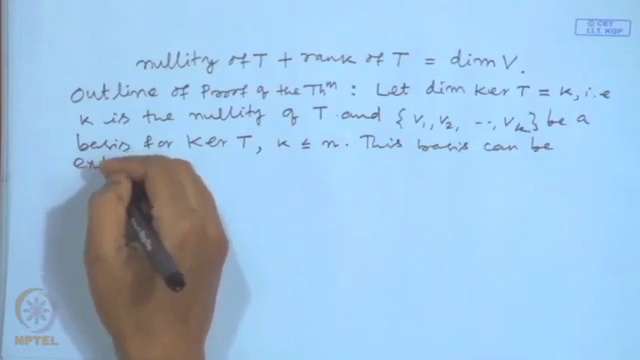 © CET
I.I.T. KGP
nullity of T + rank of T = dim V.
Outline of Proof of the Thm : Let dim Ker T = k, i.e
k is the nullity of T and {v1, v2, ..., vk} be a
basis for Ker T, k ≤ n. This basis can be
NPTEL